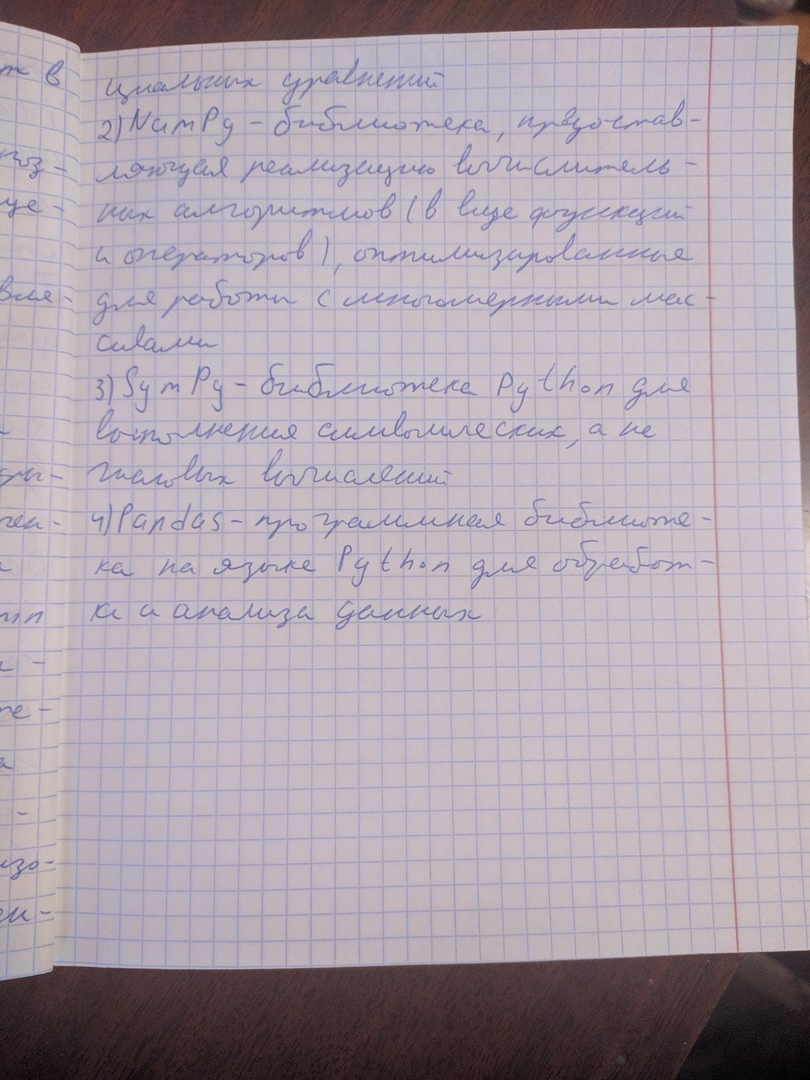 т в
циальных уравнений
2) NumPy – библиотека, предостав-
ляющая реализацию вычислитель-
ных алгоритмов (в виде функций
и операторов), оптимизированные
для работы с многомерными мас-
сивами
3) SymPy – библиотека Python для
выполнения символических, а не
числовых вычислений
4) Pandas – программная библиоте-
ка на языке Python для обработ-
ки и анализа данных